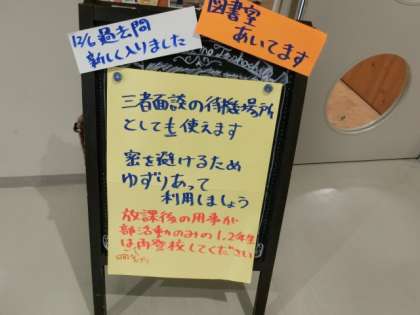 12/6 過去問
新しく入りました
図書室
あいてます
三者面談の待機場所
としても使えます
密を避けるため
ゆずりあって
利用しましょう
放課後の用事が
部活動のみの1.2年生
は再登校してください